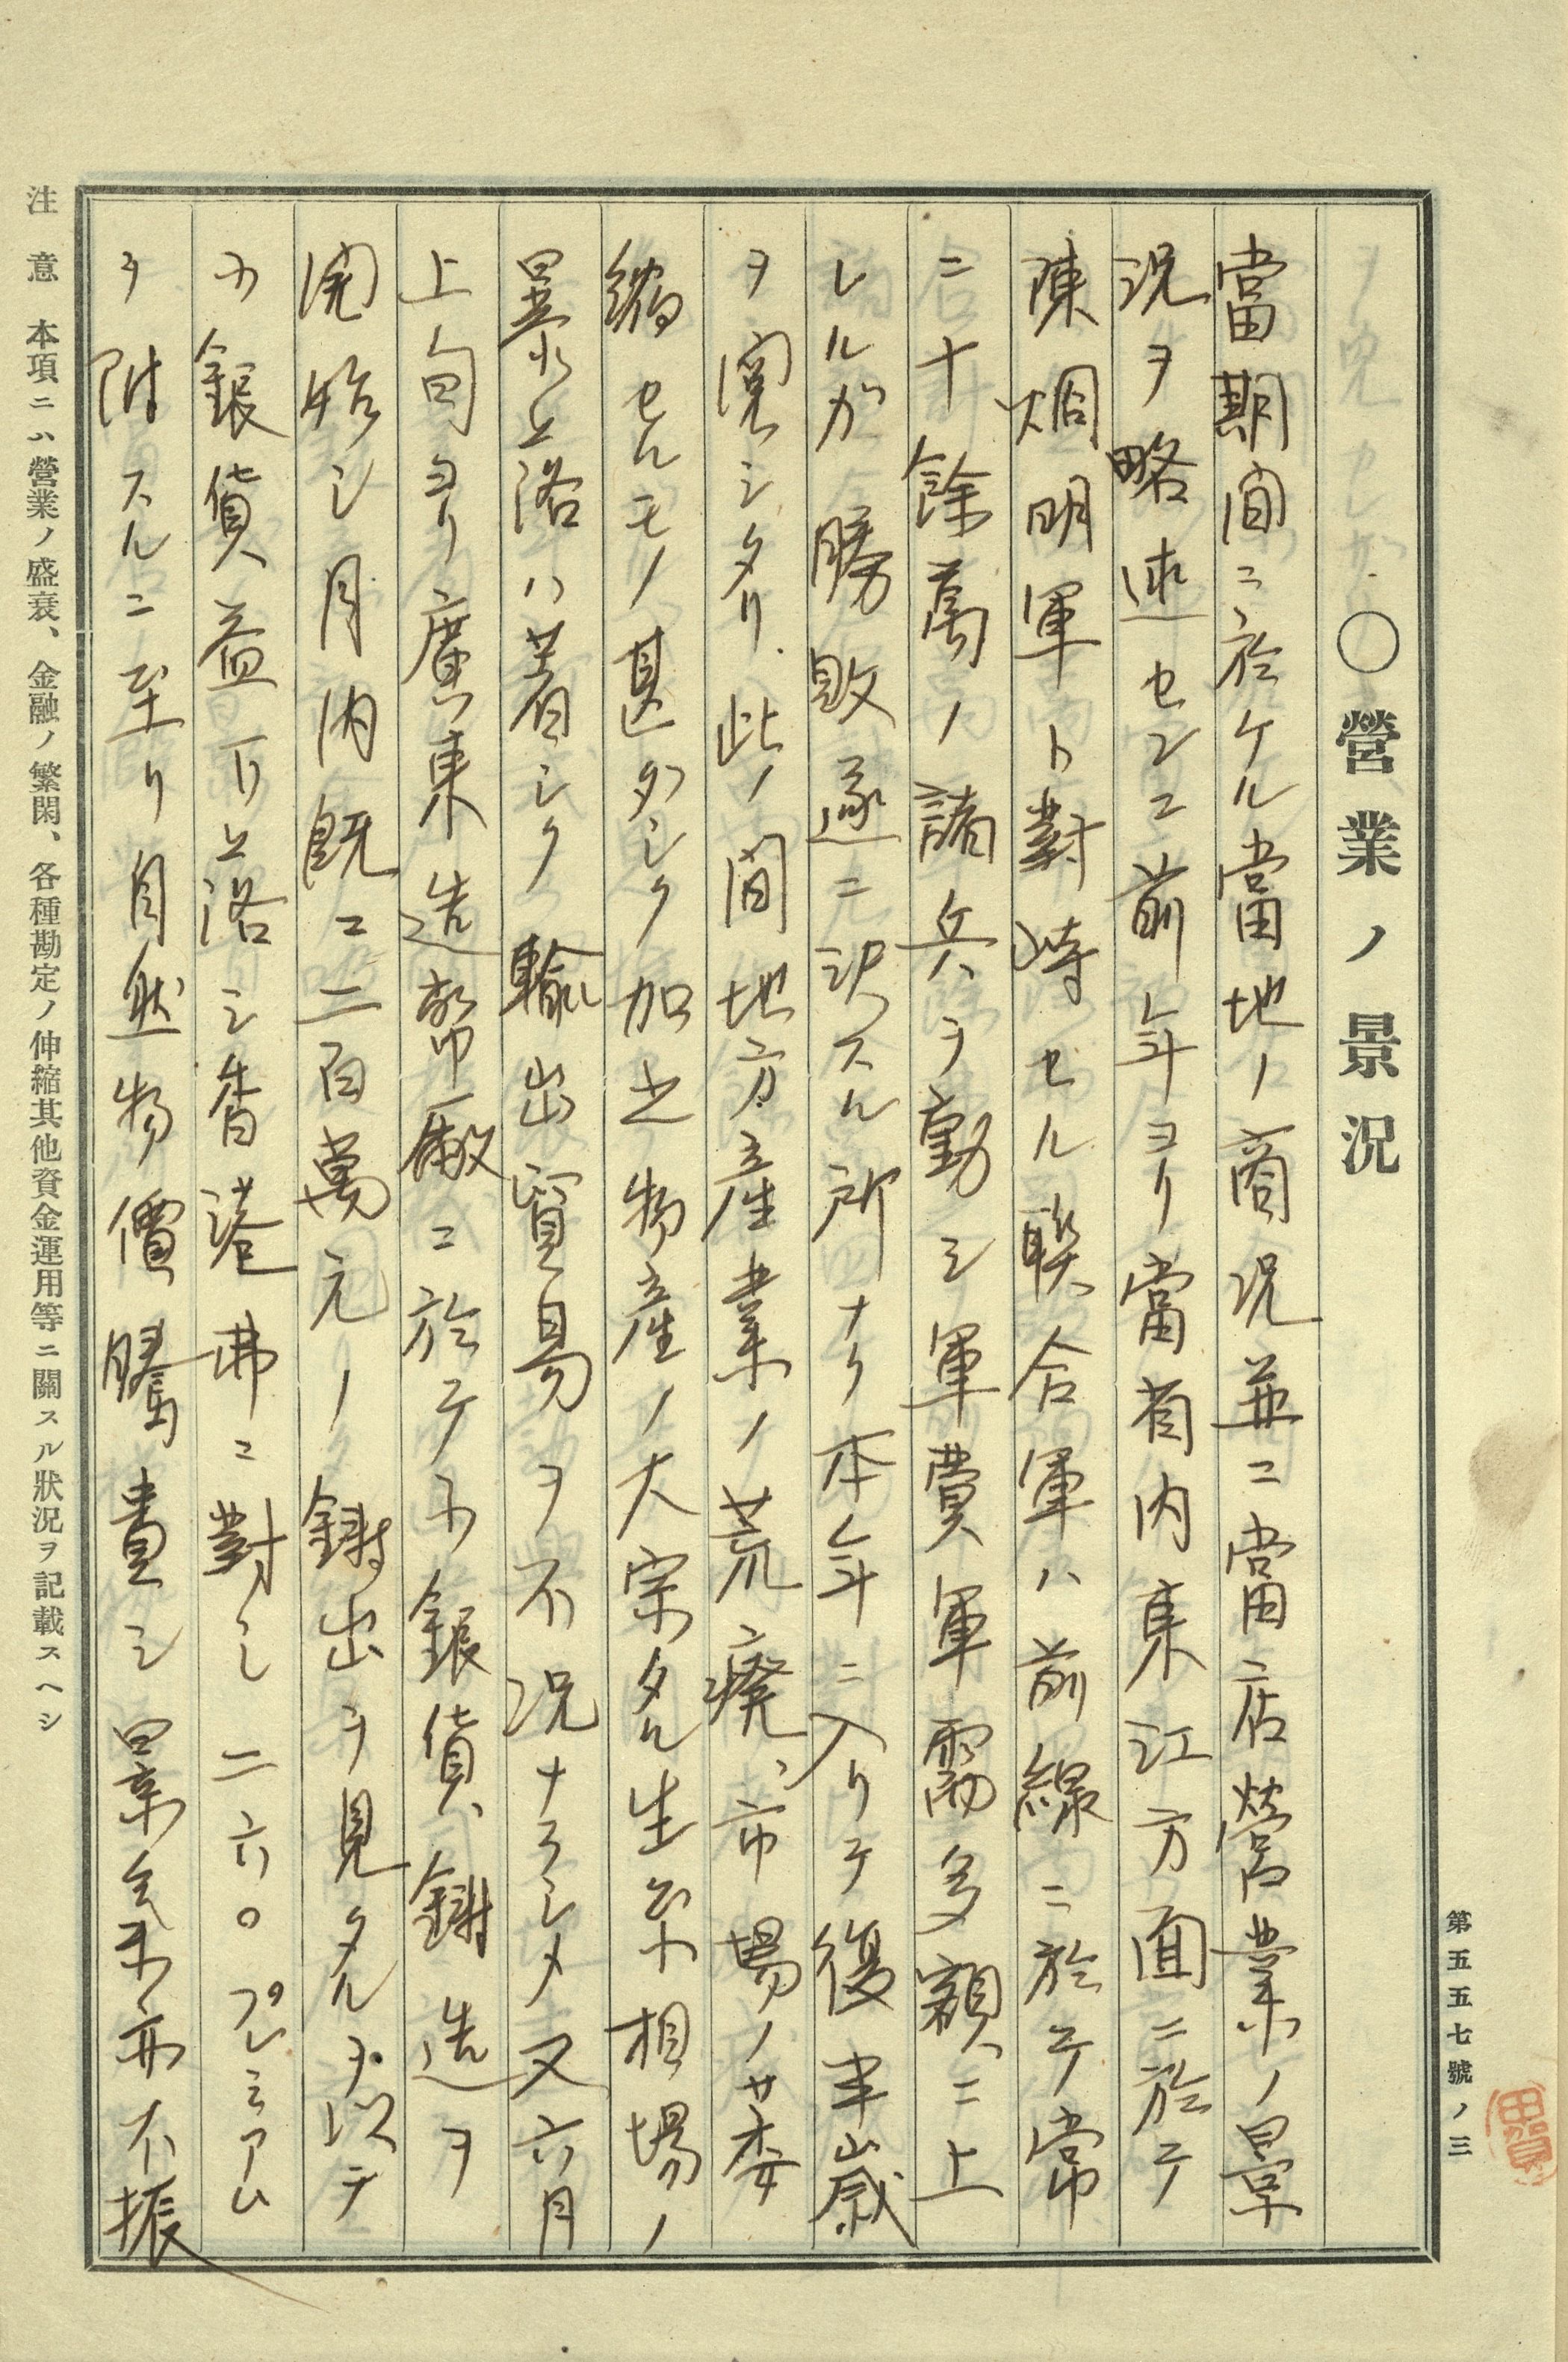 第五五七號ノ三
〇營業ノ景況
當期間ニ於ケル當地ノ商況並ニ當店營業ノ景
況ヲ略述センニ前年ヨリ當省内東江方面ニ於テ
陳烱明軍ト對峙セル聯合軍ハ前線ニ於テ常
ニ十餘萬ノ諸兵ヲ動シ軍費軍需多額ニ上
レルガ勝敗遂ニ決スル所ナク本年ニ入リテ復半歳
ヲ閲シタリ此ノ間地方産業ノ荒癈、市場ノ萎
縮セルモノ甚タシク加之物産ノ大宗タル生糸相場ノ
暴落ハ著シク輸出貿易ヲ不況ナラシメ又六月
上旬ヨリ廣東造幣廠ニ於テ小銀貨鋳造ヲ
開始シ月内既ニ二百萬元ノ鋳出ヲ見タルヲ以テ
小銀貨益下落シ香港弗ニ對シ二六〇プレミアム
ヲ附スルニ至リ自然物價騰貴シ景気亦不振
注意 本項ニハ營業ノ盛衰、金融ノ繁閑、各種勘定ノ伸縮其他資金運用等ニ關スル狀況ヲ記載スヘシ